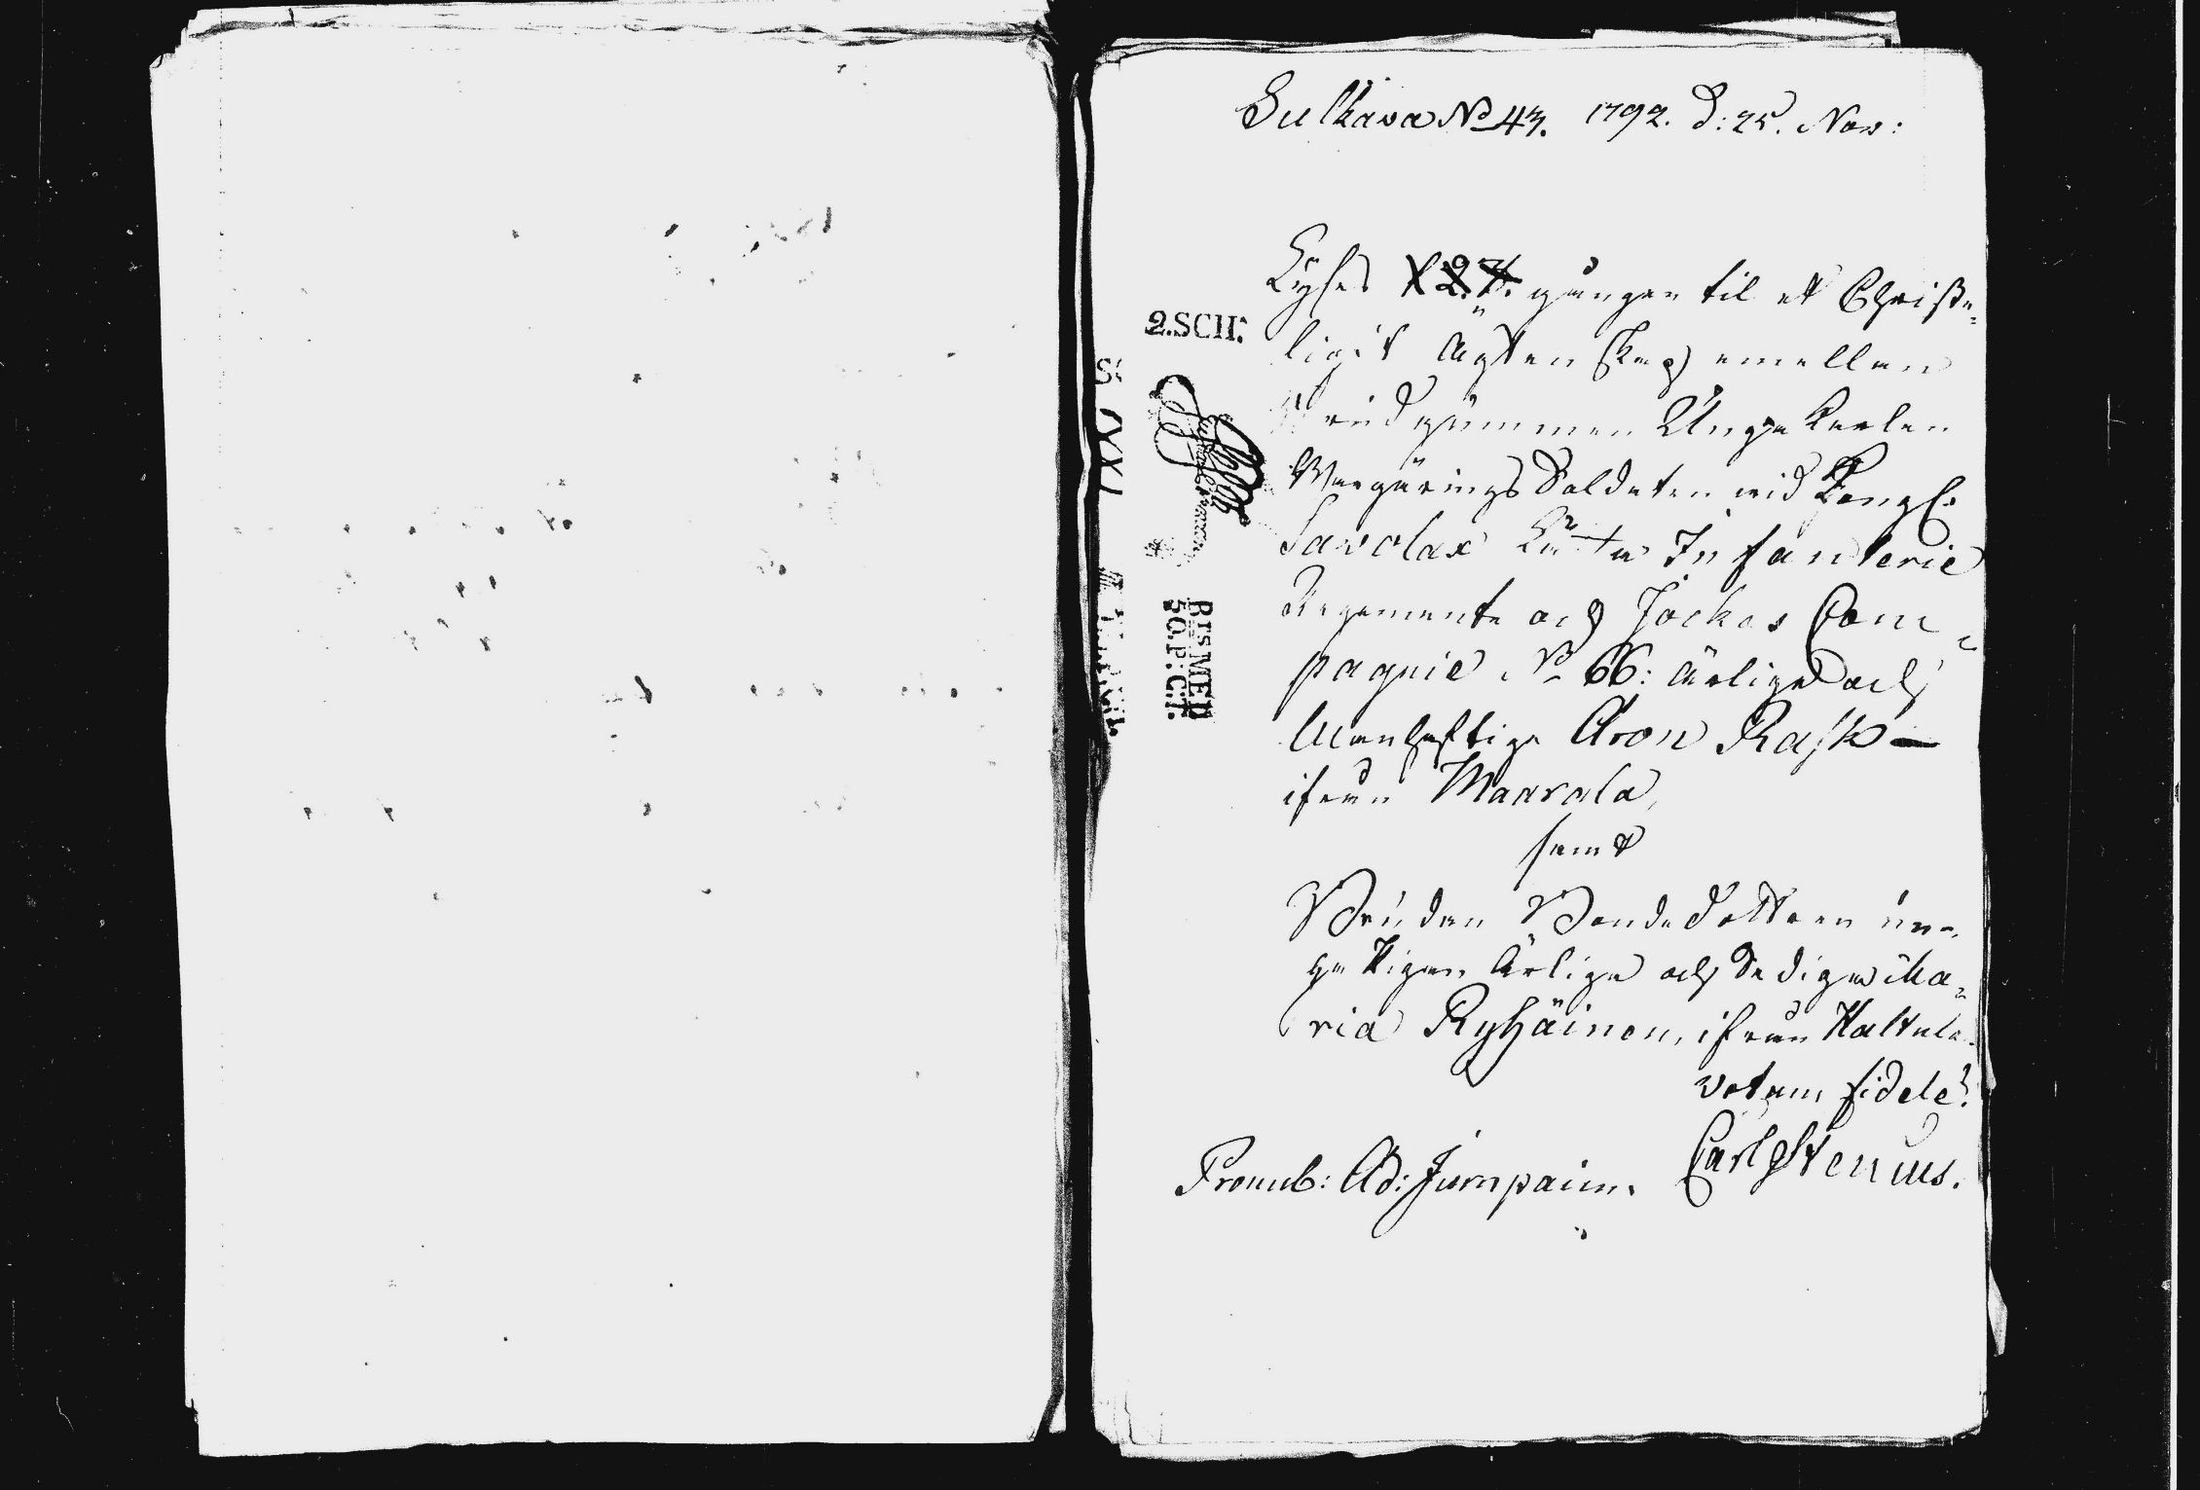 Sulkava No 43. 1792. d: 25. Nov:
Lyses 1 2 3. gången til et Christe=
2.SCH:
ligit Ägtenskap emellan
Brudgummen Unga Karlen
Wargærings Soldaten vid Kongl.
Savolax Lätta Infanterie
Regemente och Jockas Com=
pagnie No 66: ärlige och
Manhaftige Aron Rask —
ifrån Maarala,
samt
Bruden Bondedottren un-
ga Pigan Ärliga och Sediga Ma=
ria Ryhäinen, ifrån Kaltula
votum fidele?
Pronub: Ad: Jumpain.
Carl Stenius.
BTSMED
50.P:C:T.